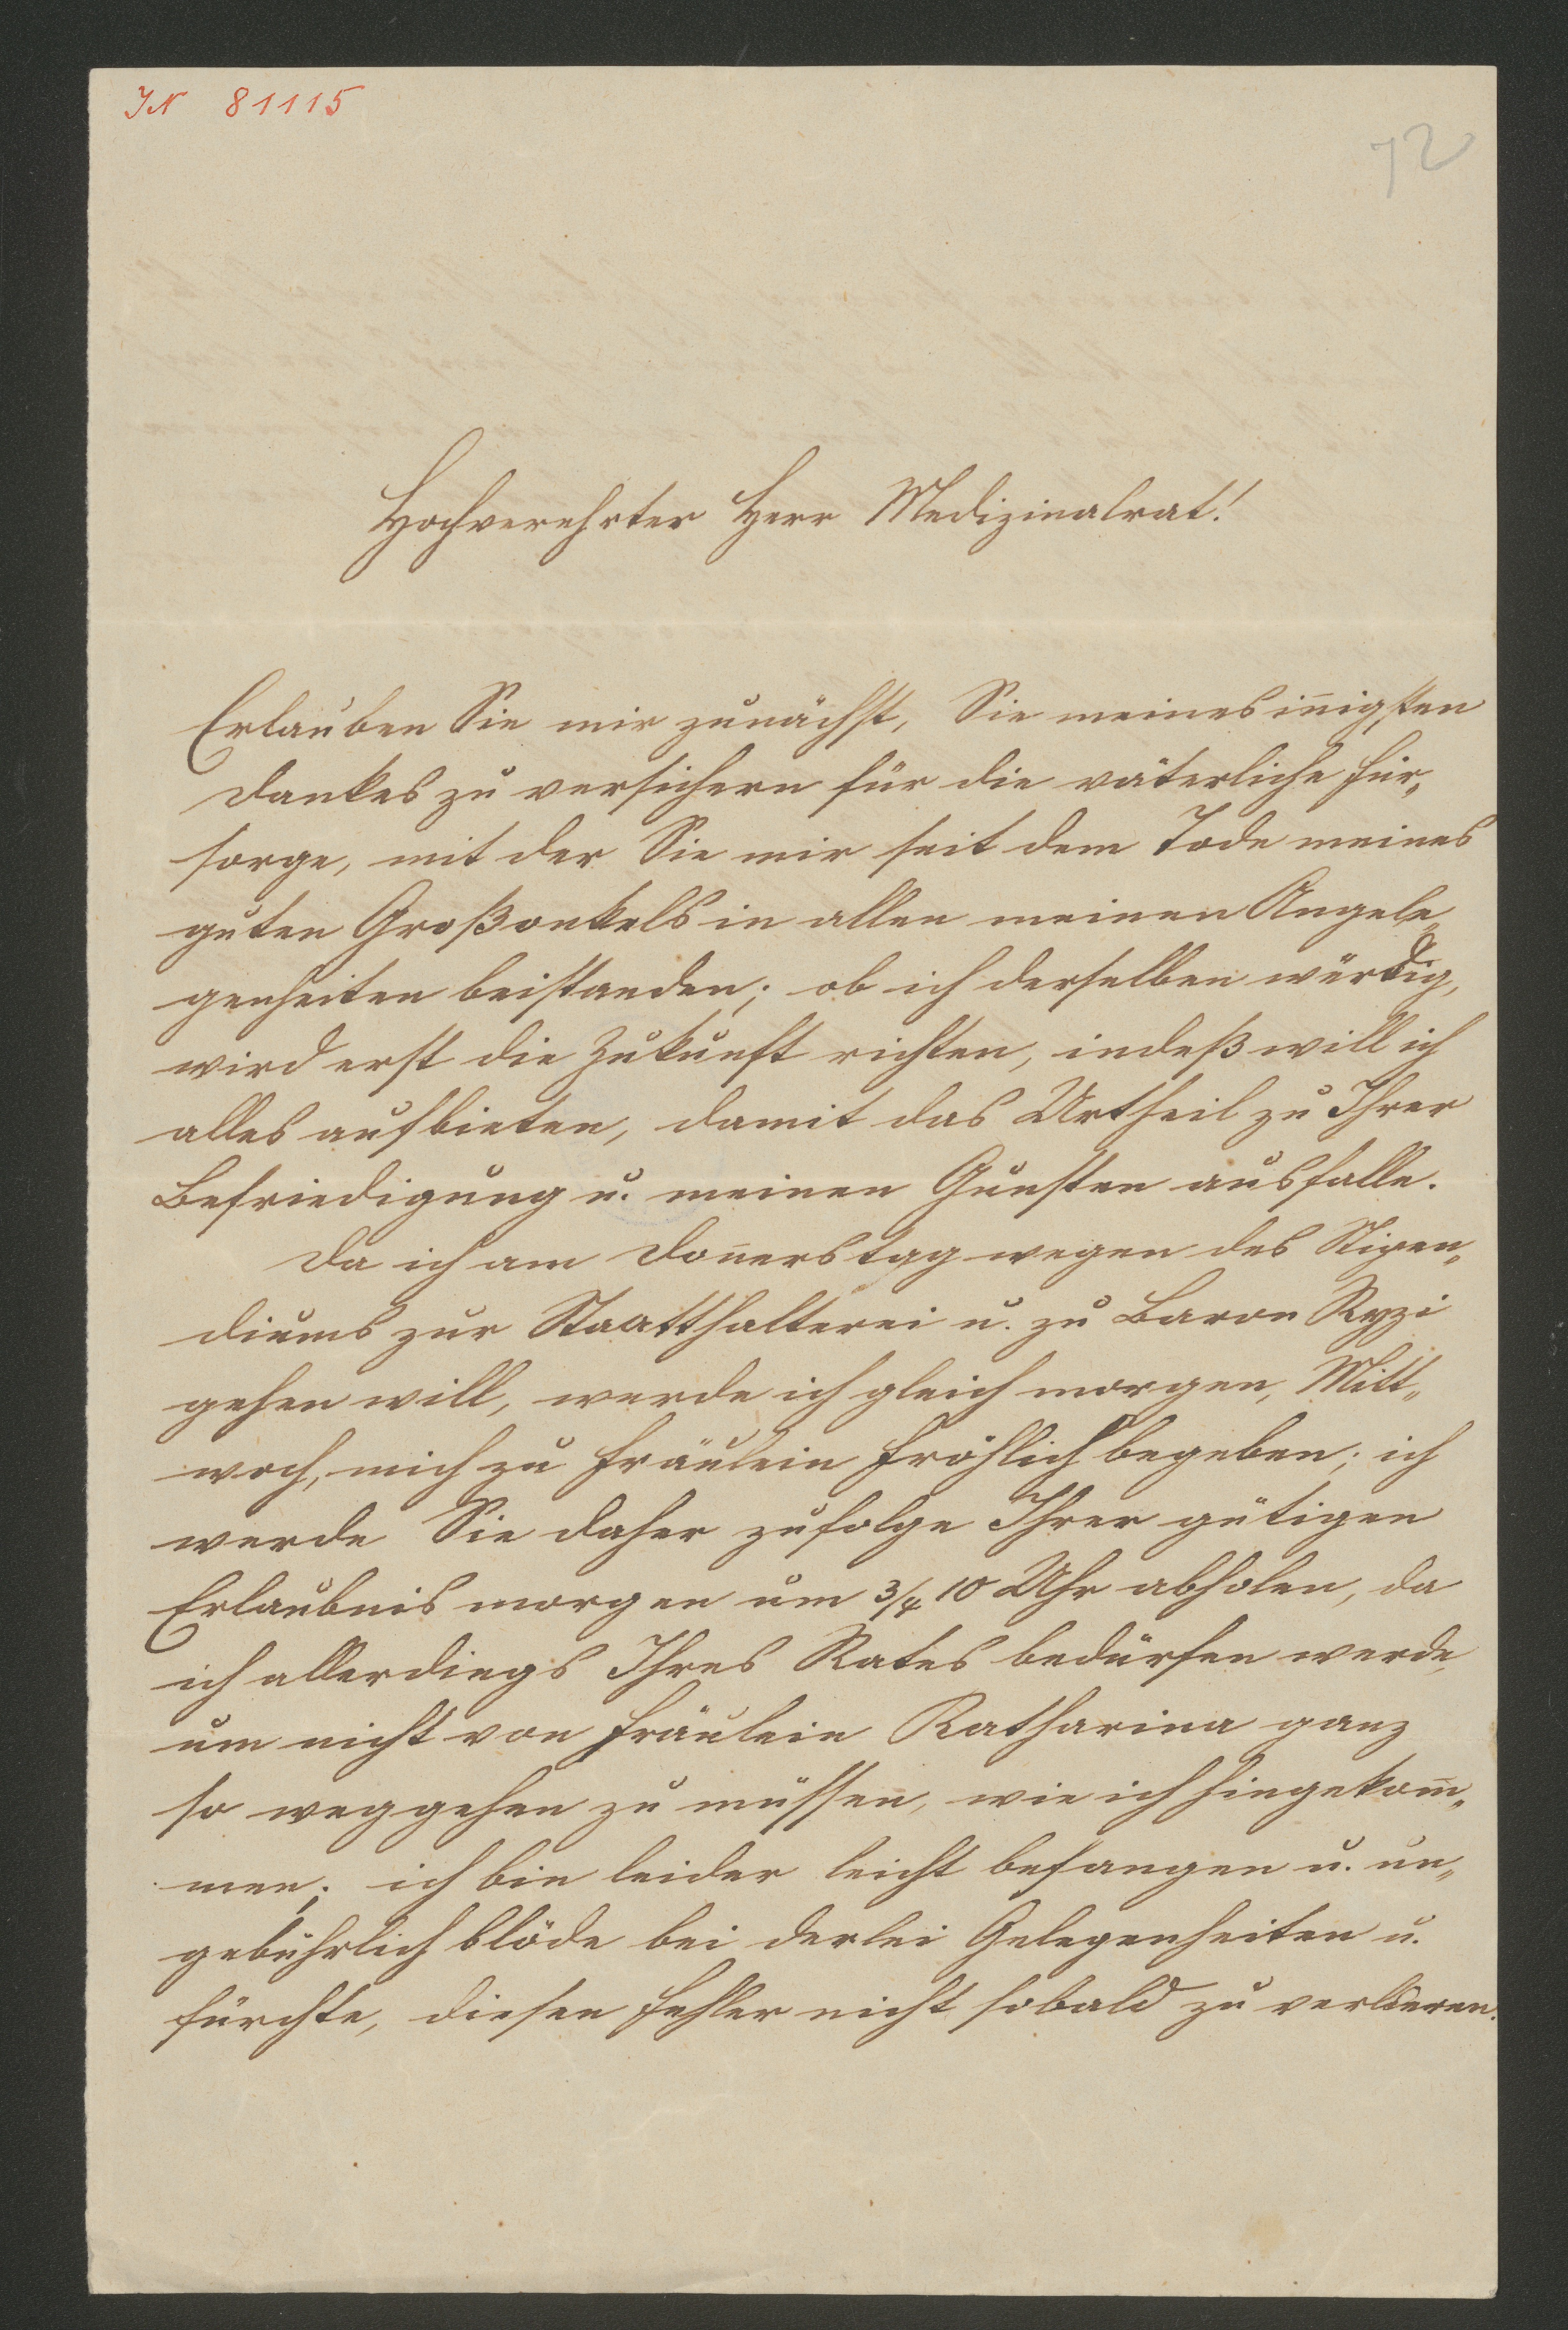 JN 81115
72
Hochverehrter Herr Medizinalrat!
Erlauben Sie mir zunächst, Sie meines in̅igsten
Dankes zu versichern für die väterliche Für„
sorge, mit der Sie mir seit dem Tode meines
guten Großonkels in allen meinen Angele„
genheiten beistanden; ob ich derselben würdig,
wird erst die Zukunft richten, indeß will ich
alles aufbieten, damit das Urtheil zu Ihrer
Befriedigung u. meinen Gunsten ausfalle.
Da ich am Don̅erstag wegen des Stipen„
diums zur Staatthalterei u. zu Baron Ryzi
gehen will, werde ich gleich morgen, Mitt„
woch, mich zu Fräulein Fröhlich begeben; ich
werde Sie daher zufolge Ihrer gütigen
Erlaubnis morgen um 3/4 10 Uhr abholen, da
ich allerdings Ihres Rates bedürfen werde,
um nicht von Fräulein Katharina ganz
so weggehen zu müssen, wie ich hingekom̅„
men; ich bin leider leicht befangen u. un„
gebührlich blöde bei derlei Gelegenheiten u.
fürchte, diesen Fehler nicht sobald zu verlieren.